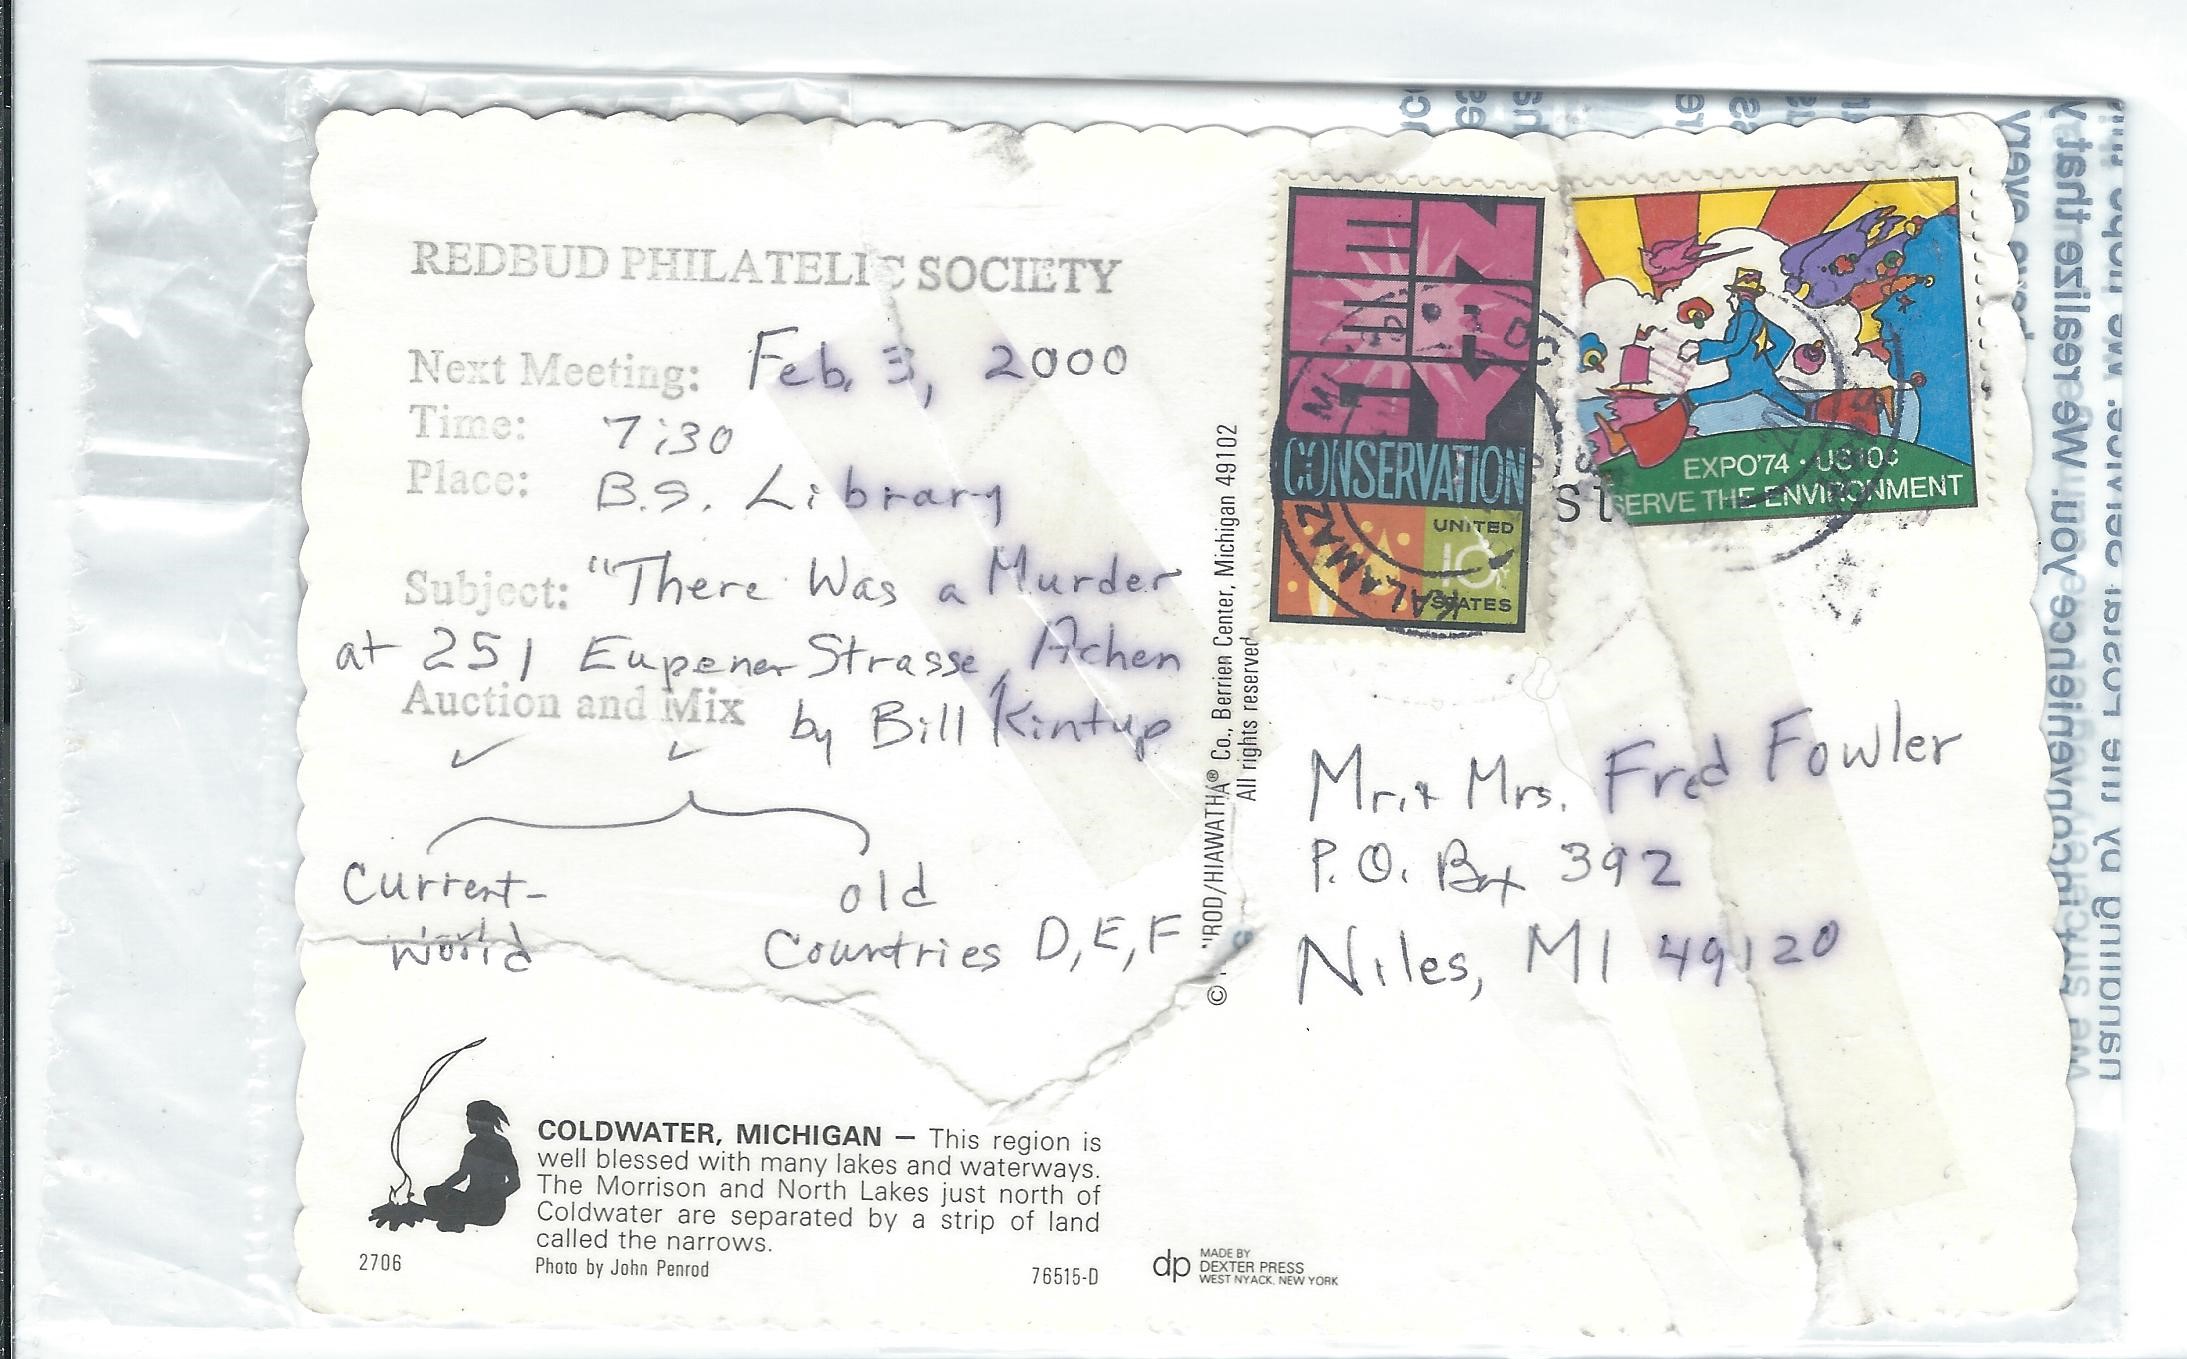 REDBUD PHILATELIC SOCIETY
Next Meeting: Feb. 3, 2000
Time: 7:30
Place: B.S. Library
Subject: "There Was a Murder
at 251 Eupener Strasse, Achen
Auction and Mix by Bill Kintup
Current-
World
old
Countries D, E, F
COLDWATER, MICHIGAN — This region is
well blessed with many lakes and waterways.
The Morrison and North Lakes just north of
Coldwater are separated by a strip of land
called the narrows.
Photo by John Penrod
2706
76515-D
ROD/HIAWATHA® Co., Berrien Center, Michigan 49102
All rights reserved
dp
MADE BY
DEXTER PRESS
WEST NYACK, NEW YORK
ENERGY
CONSERVATION
UNITED
10c
STATES
EXPO'74 • US 10¢
SERVE THE ENVIRONMENT
Mr. + Mrs. Fred Fowler
P.O. Box 392
Niles, MI 49120